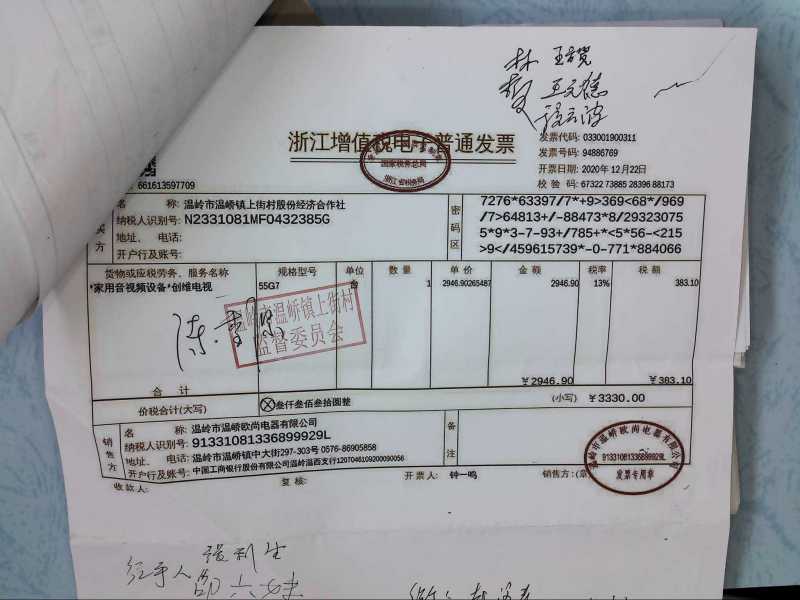 浙江增值税电子普通发票
国家税务总局
浙江省税务局
661613597709
发票代码: 033001900311
发票号码: 94886769
开票日期: 2020年12月22日
校 验 码: 67322 73885 28396 88173
买方
名 称: 温岭市温峤镇上街村股份经济合作社
纳税人识别号: N2331081MF0432385G
地址、 电话:
开户行及账号:
密码区
7276*63397/7*+9>369<68*/969
/7>64813+/-88473*8/29323075
5*9*3-7-93+/785+*<5*56-<215
>9</459615739*-0-771*884066
货物或应税劳务、服务名称 规格型号 单位 数 量 单 价 金 额 税率 税 额
*家用音视频设备*创维电视 55G7 台 1 2946.90265487 2946.90 13% 383.10
温岭市温峤镇上街村
监督委员会
合 计 ￥2946.90 ￥383.10
价税合计(大写) ⊗叁仟叁佰叁拾圆整 (小写) ￥3330.00
销售方
名 称: 温岭市温峤欧尚电器有限公司
纳税人识别号: 91331081336899929L
地址、 电话: 温岭市温峤镇中大街297-303号 0576-86905858
开户行及账号: 中国工商银行股份有限公司温岭温西支行1207046109200090056
备注
温岭市温峤欧尚电器有限公司
91331081336899929L
发票专用章
收款人: 复核: 开票人: 钟一鸣 销售方: (章)
经手人